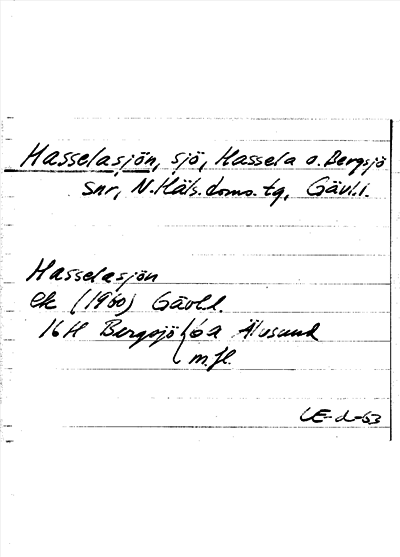 Hasselasjön, sjö, Hassela o. Bergsjö
snr, N.Häls.doms.tg, Gävl.l.
Hasselasjön
ek (1960) Gävl.l.
16H Bergsjö 6a Älvsund
m.fl.